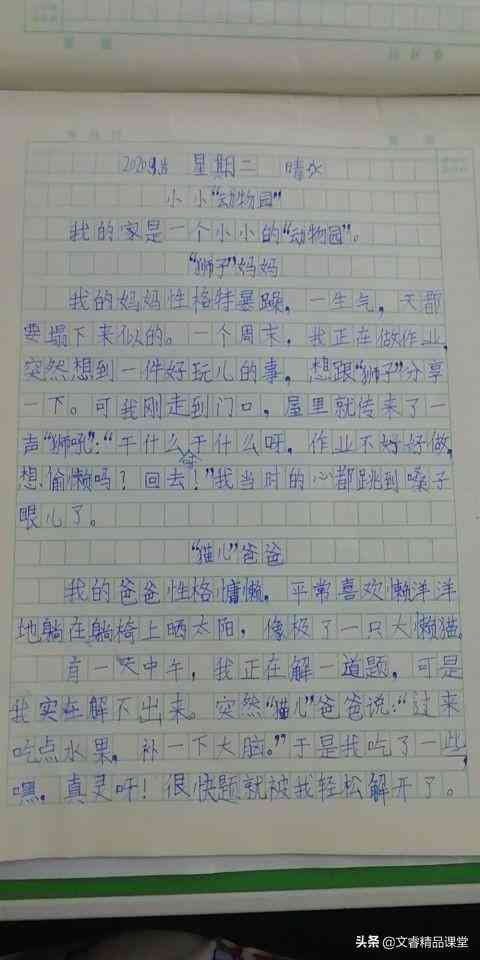 2020.9.8 星期二 晴
小小“动物园”
我的家是一个小小的“动物园”。
“狮子”妈妈
我的妈妈性格特暴躁，一生气，天都
要塌下来似的。一个周末，我正在做作业，
突然想到一件好玩儿的事，想跟“狮子”分享
一下。可我刚走到门口，屋里就传来了一
声“狮吼”：“干什么干什么呀，作业不好好做，
想偷懒吗？回去！”我当时的心都跳到嗓子
眼儿了。
“猫儿”爸爸
我的爸爸性格慵懒，平常喜欢懒洋洋
地躺在躺椅上晒太阳，像极了一只大懒猫。
有一天中午，我正在解一道题，可是
我实在解不出来。突然“猫儿”爸爸说：“过来
吃点水果，补一下大脑。”于是我吃了一些，
嘿，真灵吖！很快题就被我轻松解开了。
头条@文睿精品课堂